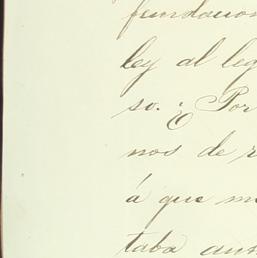 fundacion
ley al leg
so. ¿Por
nos de r
á que m
taba aun